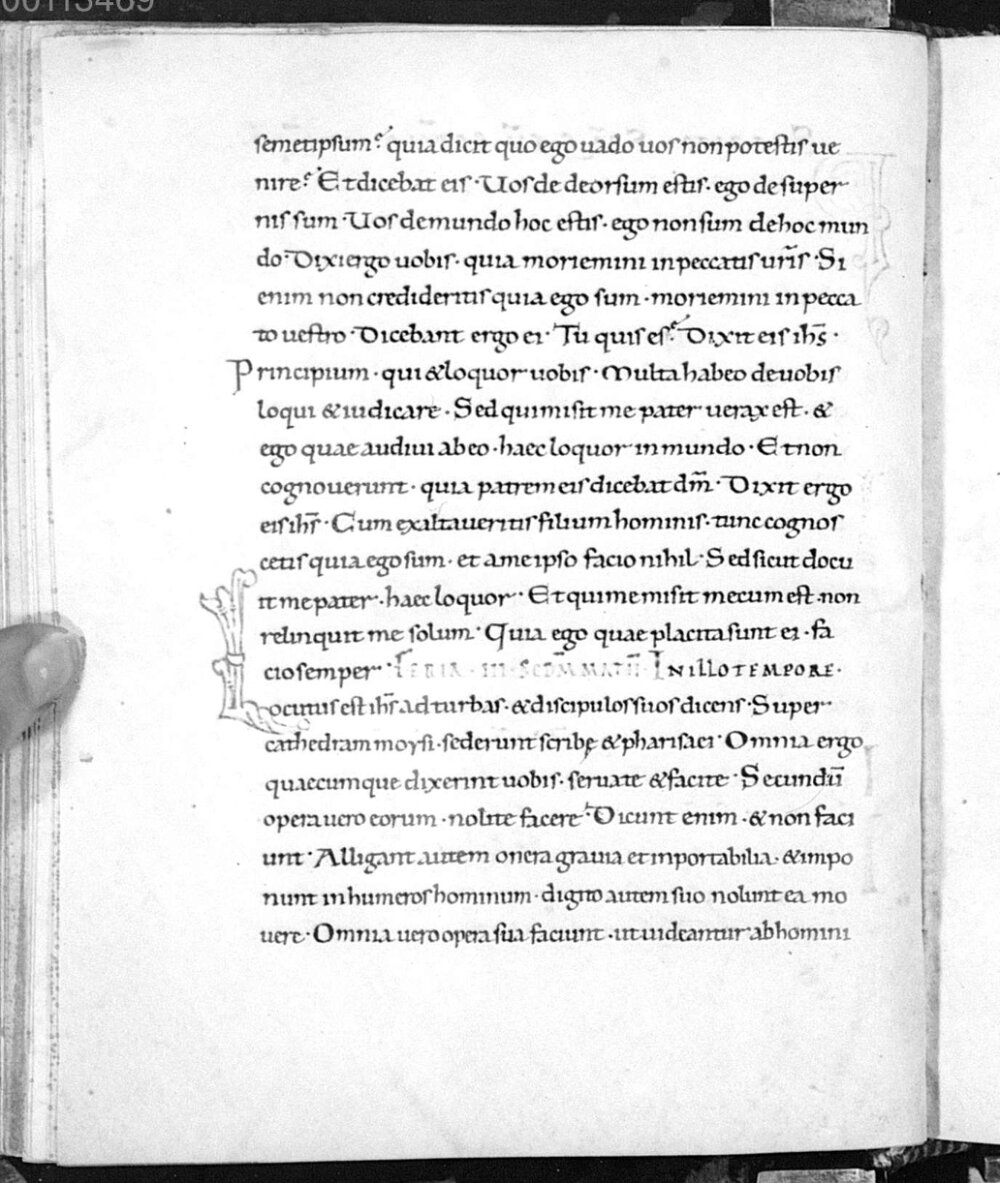 00113489
semetipsum? quia dicit quo ego uado uos non potestis ue
nire? Et dicebat eis · Uos de deorsum estis · ego de super
nis sum · Uos de mundo hoc estis · ego non sum de hoc mun
do · Dixi ergo uobis · quia moriemini in peccatis ur̄is · Si
enim non credideritis quia ego sum · moriemini in pecca
to uestro · Dicebant ergo ei · Tu quis es? Dixit eis ih̄s ·
Principium · qui & loquor uobis · Multa habeo de uobis
loqui & iudicare · Sed qui misit me pater uerax est · &
ego quae audiui ab eo · haec loquor in mundo · Et non
cognouerunt · quia patrem eis dicebat dm̄ · Dixit ergo
eis ih̄s · Cum exaltaueritis filium hominis · tunc cognos
cetis quia ego sum · et a me ipso facio nihil · Sed sicut docu
it me pater · haec loquor · Et qui me misit mecum est · non
relinquit me solum · Quia ego quae placita sunt ei · fa
cio semper · FERIA · III · SCDM MATH̄ · IN ILLO TEMPORE ·
Locutus est ih̄s ad turbas · & discipulos suos dicens · Super
cathedram moysi · sederunt scribę & pharisaei · Omnia ergo
quaecumque dixerint uobis · seruate & facite · Secundū
opera uero eorum · nolite facere · Dicunt enim · & non faci
unt · Alligant autem onera grauia et inportabilia · & impo
nunt in humeros hominum · digito autem suo nolunt ea mo
uere · Omnia uero opera sua faciunt · ut uideantur ab homini